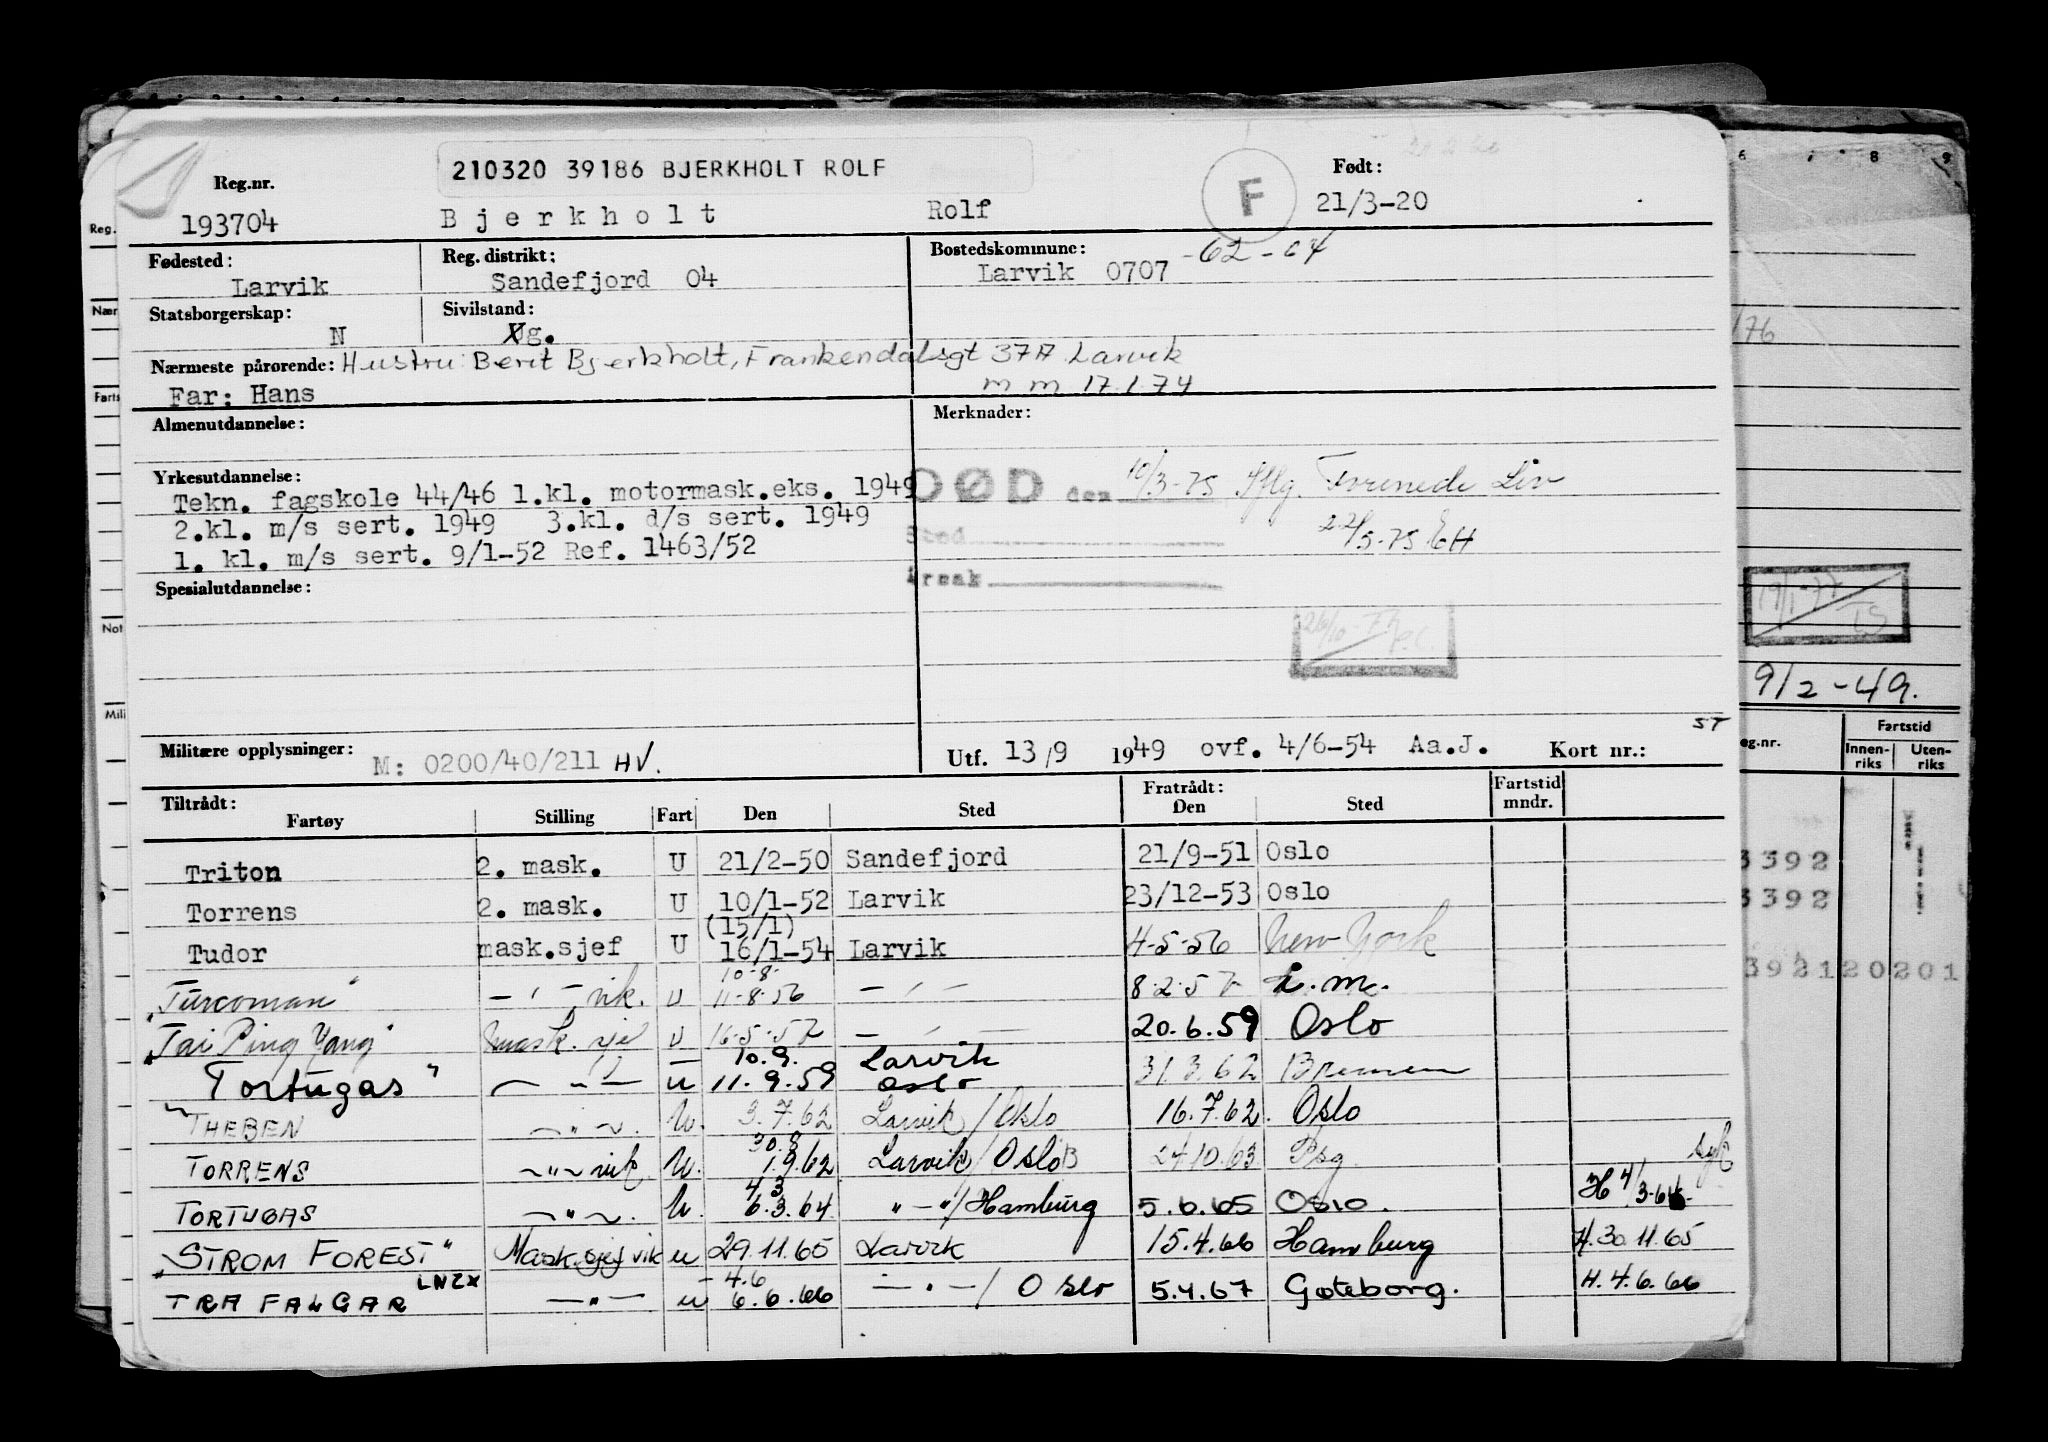 210320 39186 BJERKHOLT ROLF
Reg.nr. Født:
193704 Bjerkholt Rolf F 21/3-20
Fødested: Reg. distrikt: Bostedskommune:
Larvik Sandefjord 04 Larvik 0707 -62-64
Statsborgerskap: Sivilstand:
N g.
Nærmeste pårørende: Hustru Berit Bjerkholt, Frankendalsgt 37A Larvik
m m 17.1.74
Far: Hans
Almenutdannelse: Merknader:
Yrkesutdannelse:
Tekn. fagskole 44/46 1.kl. motormask.eks. 1949
2.kl. m/s sert. 1949 3.kl. d/s sert. 1949
1. kl. m/s sert. 9/1-52 Ref. 1463/52
DØD den 10/3-75 Iflg. Forenede Liv
Sted 22/5-75 EH
Årsak
Spesialutdannelse:
26/10-77
ST
Militære opplysninger: M: 0200/40/211 HV. Utf. 13/9 1949 ovf. 4/6-54 Aa.J. Kort nr.:
Tiltrådt: Fratrådt: Fartstid
Fartøy Stilling Fart Den Sted Den Sted mndr.
Triton 2. mask. U 21/2-50 Sandefjord 21/9-51 Oslo
Torrens 2. mask. U 10/1-52 Larvik 23/12-53 Oslo
(15/1)
Tudor mask.sjef U 16/1-54 Larvik 4-5-56 New York
10-8-
"Turcoman" — " — vik. U 11-8-56 — " — 8.2.57 k.m.
"Tai Ping Yang" Mask. sjef U 16-5-57 — " — 20.6.59 Oslo
10.9. Larvik
"Tortugas" — " — U 11.9.59 Oslo 31.3.62 Bremen
"THEBEN — " — U. 3.7.62 Larvik / Oslo 16.7.62. Oslo
30.8
TORRENS — " — vik U. 1.9.62 Larvik / Oslo 24.10.63 Psg syk
4.3
TORTUGAS — " — U. 6.3.64 " — " / Hamburg 5.6.65 Oslo. H 4/3-64
"STROM FOREST" Mask.sjef vik U 29.11.65 Larvik 15.4.66 Hamburg H.30.11.65
LNZX 4.6
TRAFALGAR — " — U 6.6.66 — " — / Oslo 5.4.67 Gøteborg. H.4.6.66
Reg.
Nær
Farts
Not
Mili
6 7 8 9
/76
19/1-77
9/2-49.
eg.nr. Fartstid
Innen-riks Uten-riks
3392
3392
392120201